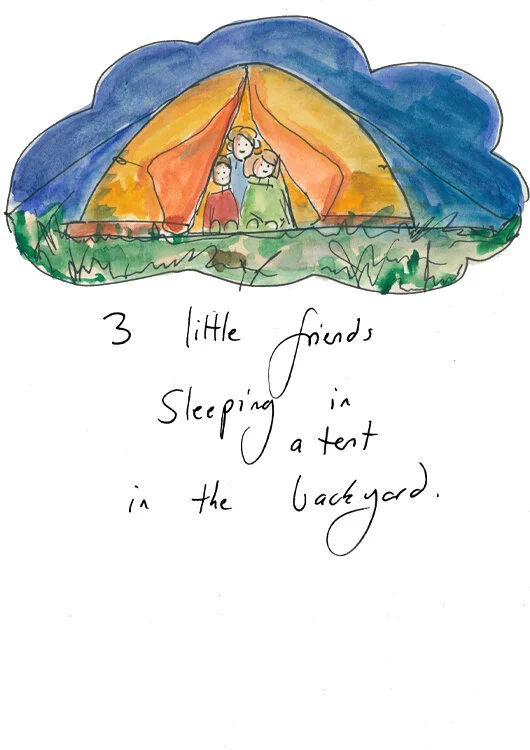 3 little friends
Sleeping in
a tent
in the backyard.